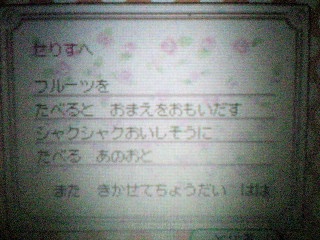 せりすへ
フルーツを
たべると おまえをおもいだす
シャクシャクおいしそうに
たべる あのおと
また きかせてちょうだい はは